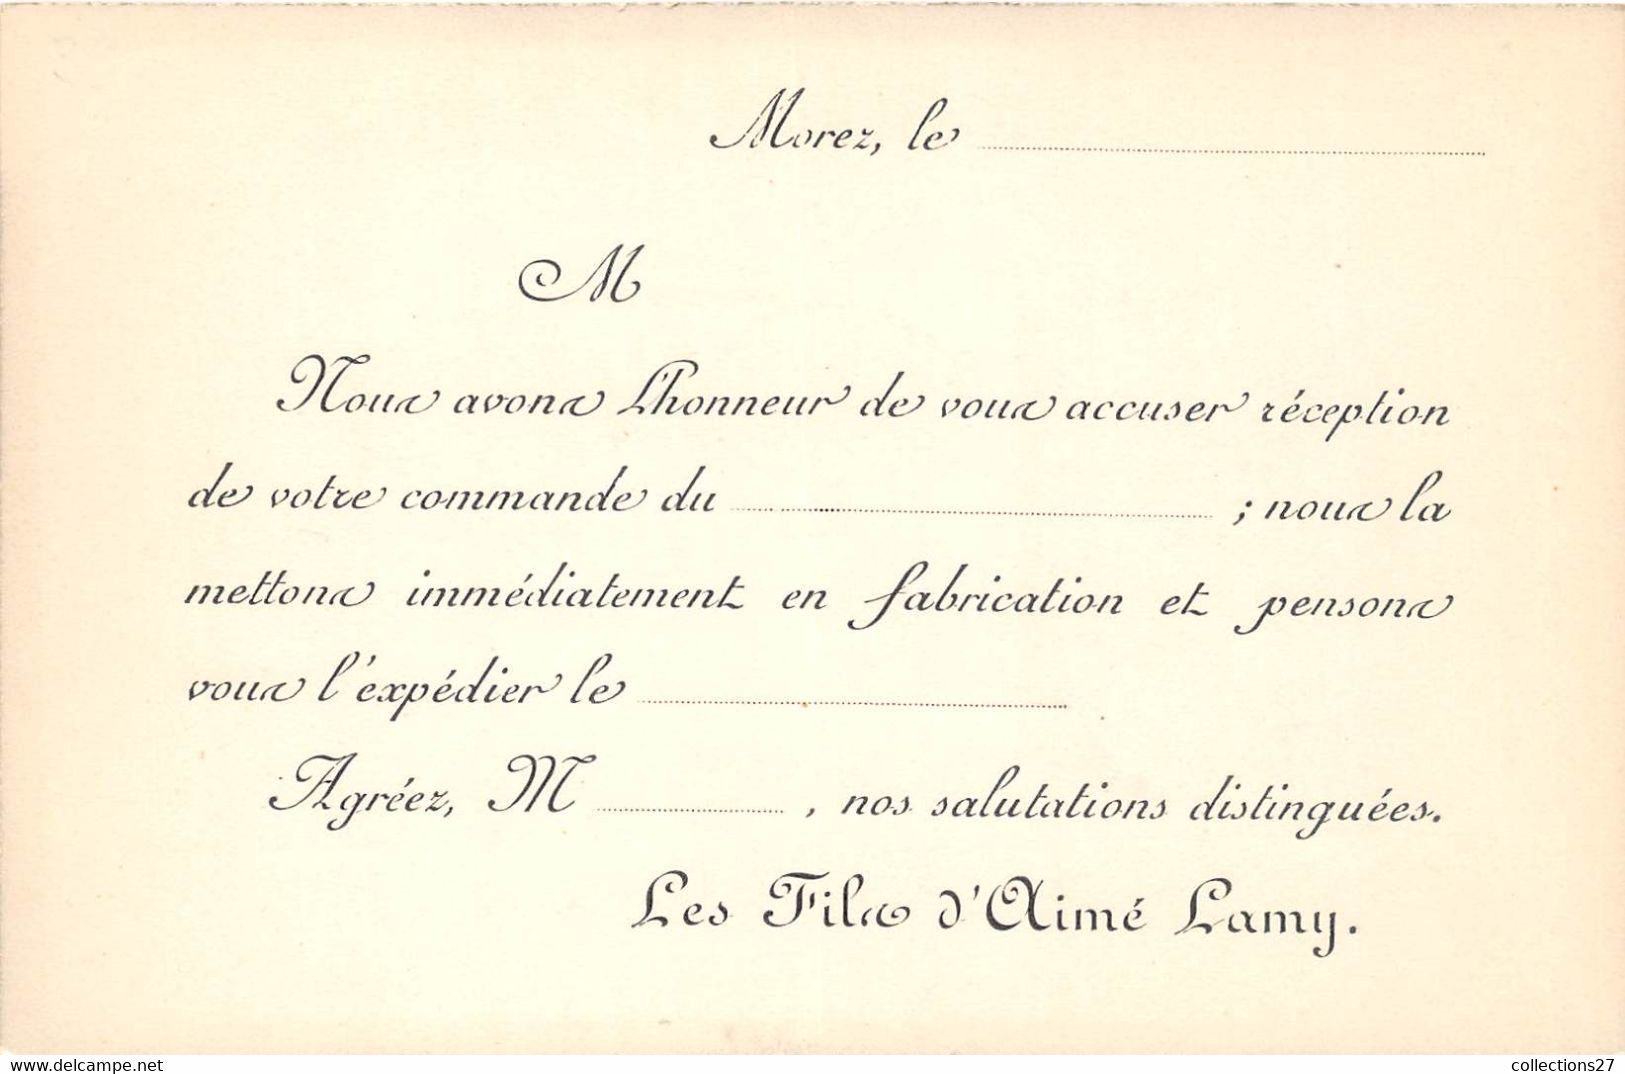 Morez, le
M
Nous avons l'honneur de vous accuser réception
de votre commande du ; nous la
mettons immédiatement en fabrication et pensons
vous l'expédier le
Agréez, M , nos salutations distinguées.
Les Fils d'Aimé Lamy.
collections27